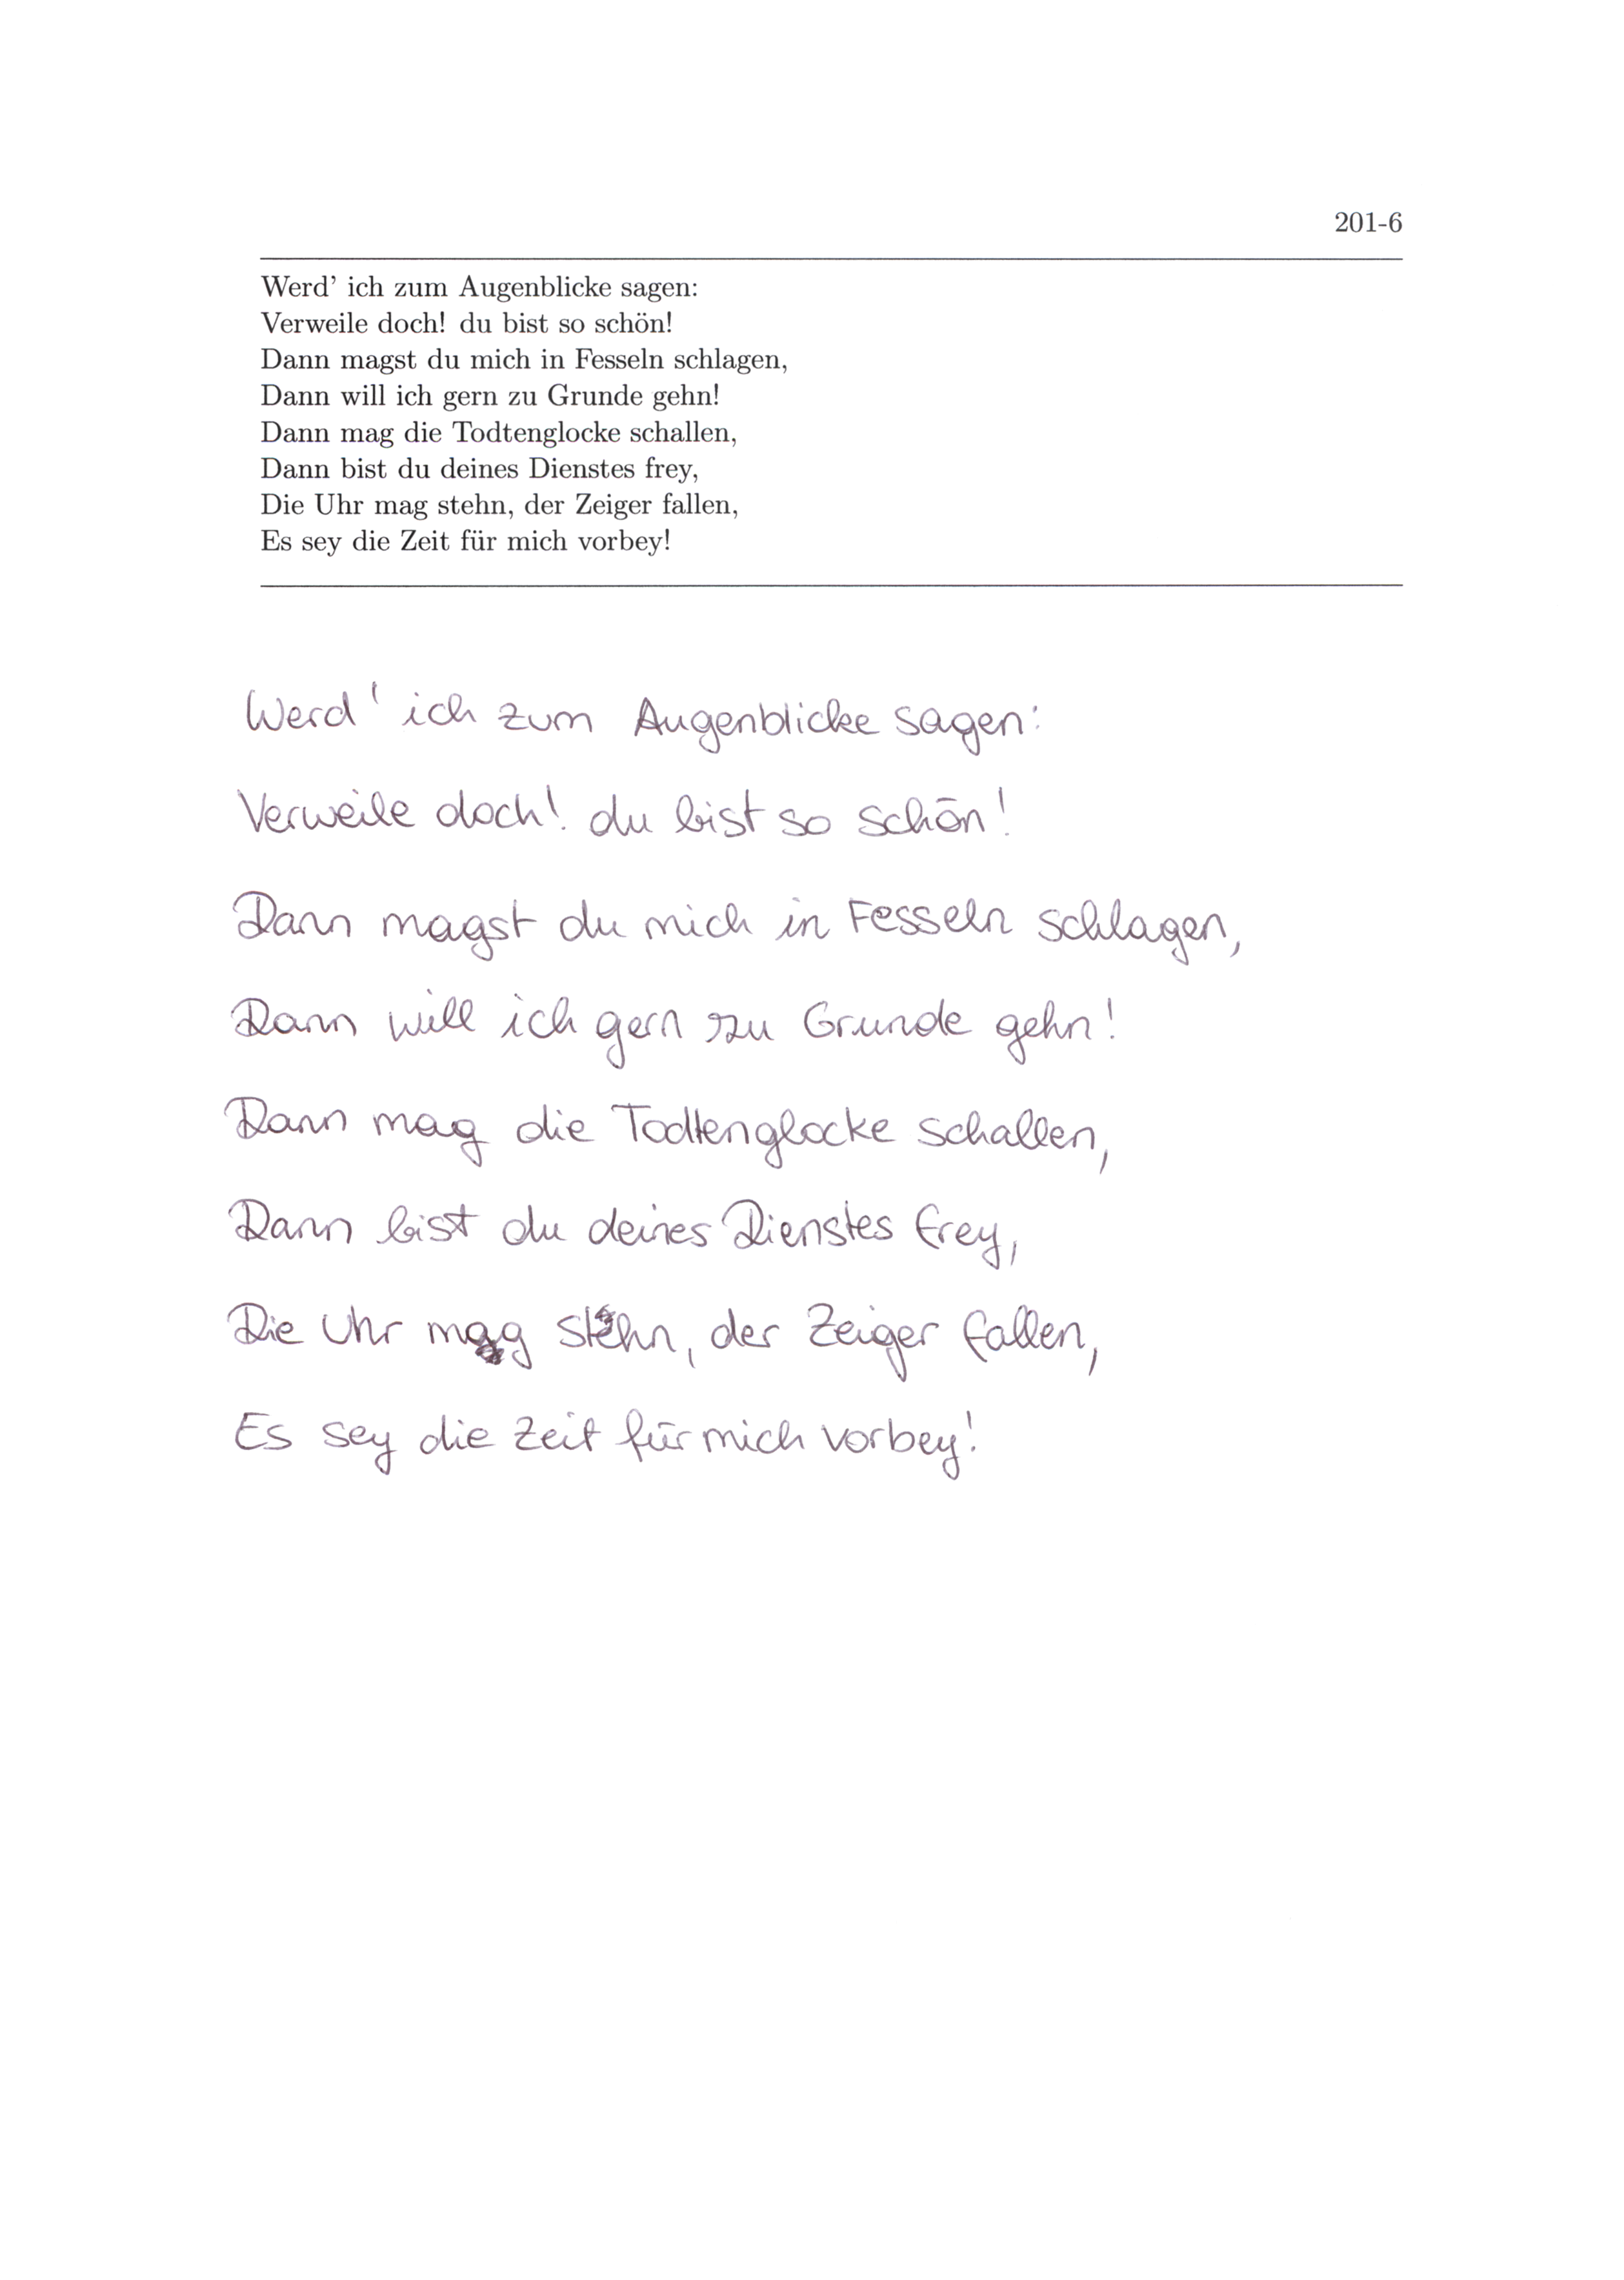 201-6
Werd’ ich zum Augenblicke sagen:
Verweile doch! du bist so schön!
Dann magst du mich in Fesseln schlagen,
Dann will ich gern zu Grunde gehn!
Dann mag die Todtenglocke schallen,
Dann bist du deines Dienstes frey,
Die Uhr mag stehn, der Zeiger fallen,
Es sey die Zeit für mich vorbey!
Werd' ich zum Augenblicke sagen:
Verweile doch! du bist so schön!
Dann magst du mich in Fesseln schlagen,
Dann will ich gern zu Grunde gehn!
Dann mag die Todtenglocke schallen,
Dann bist du deines Dienstes frey,
Die Uhr mag stehn, der Zeiger fallen,
Es sey die Zeit für mich vorbey!